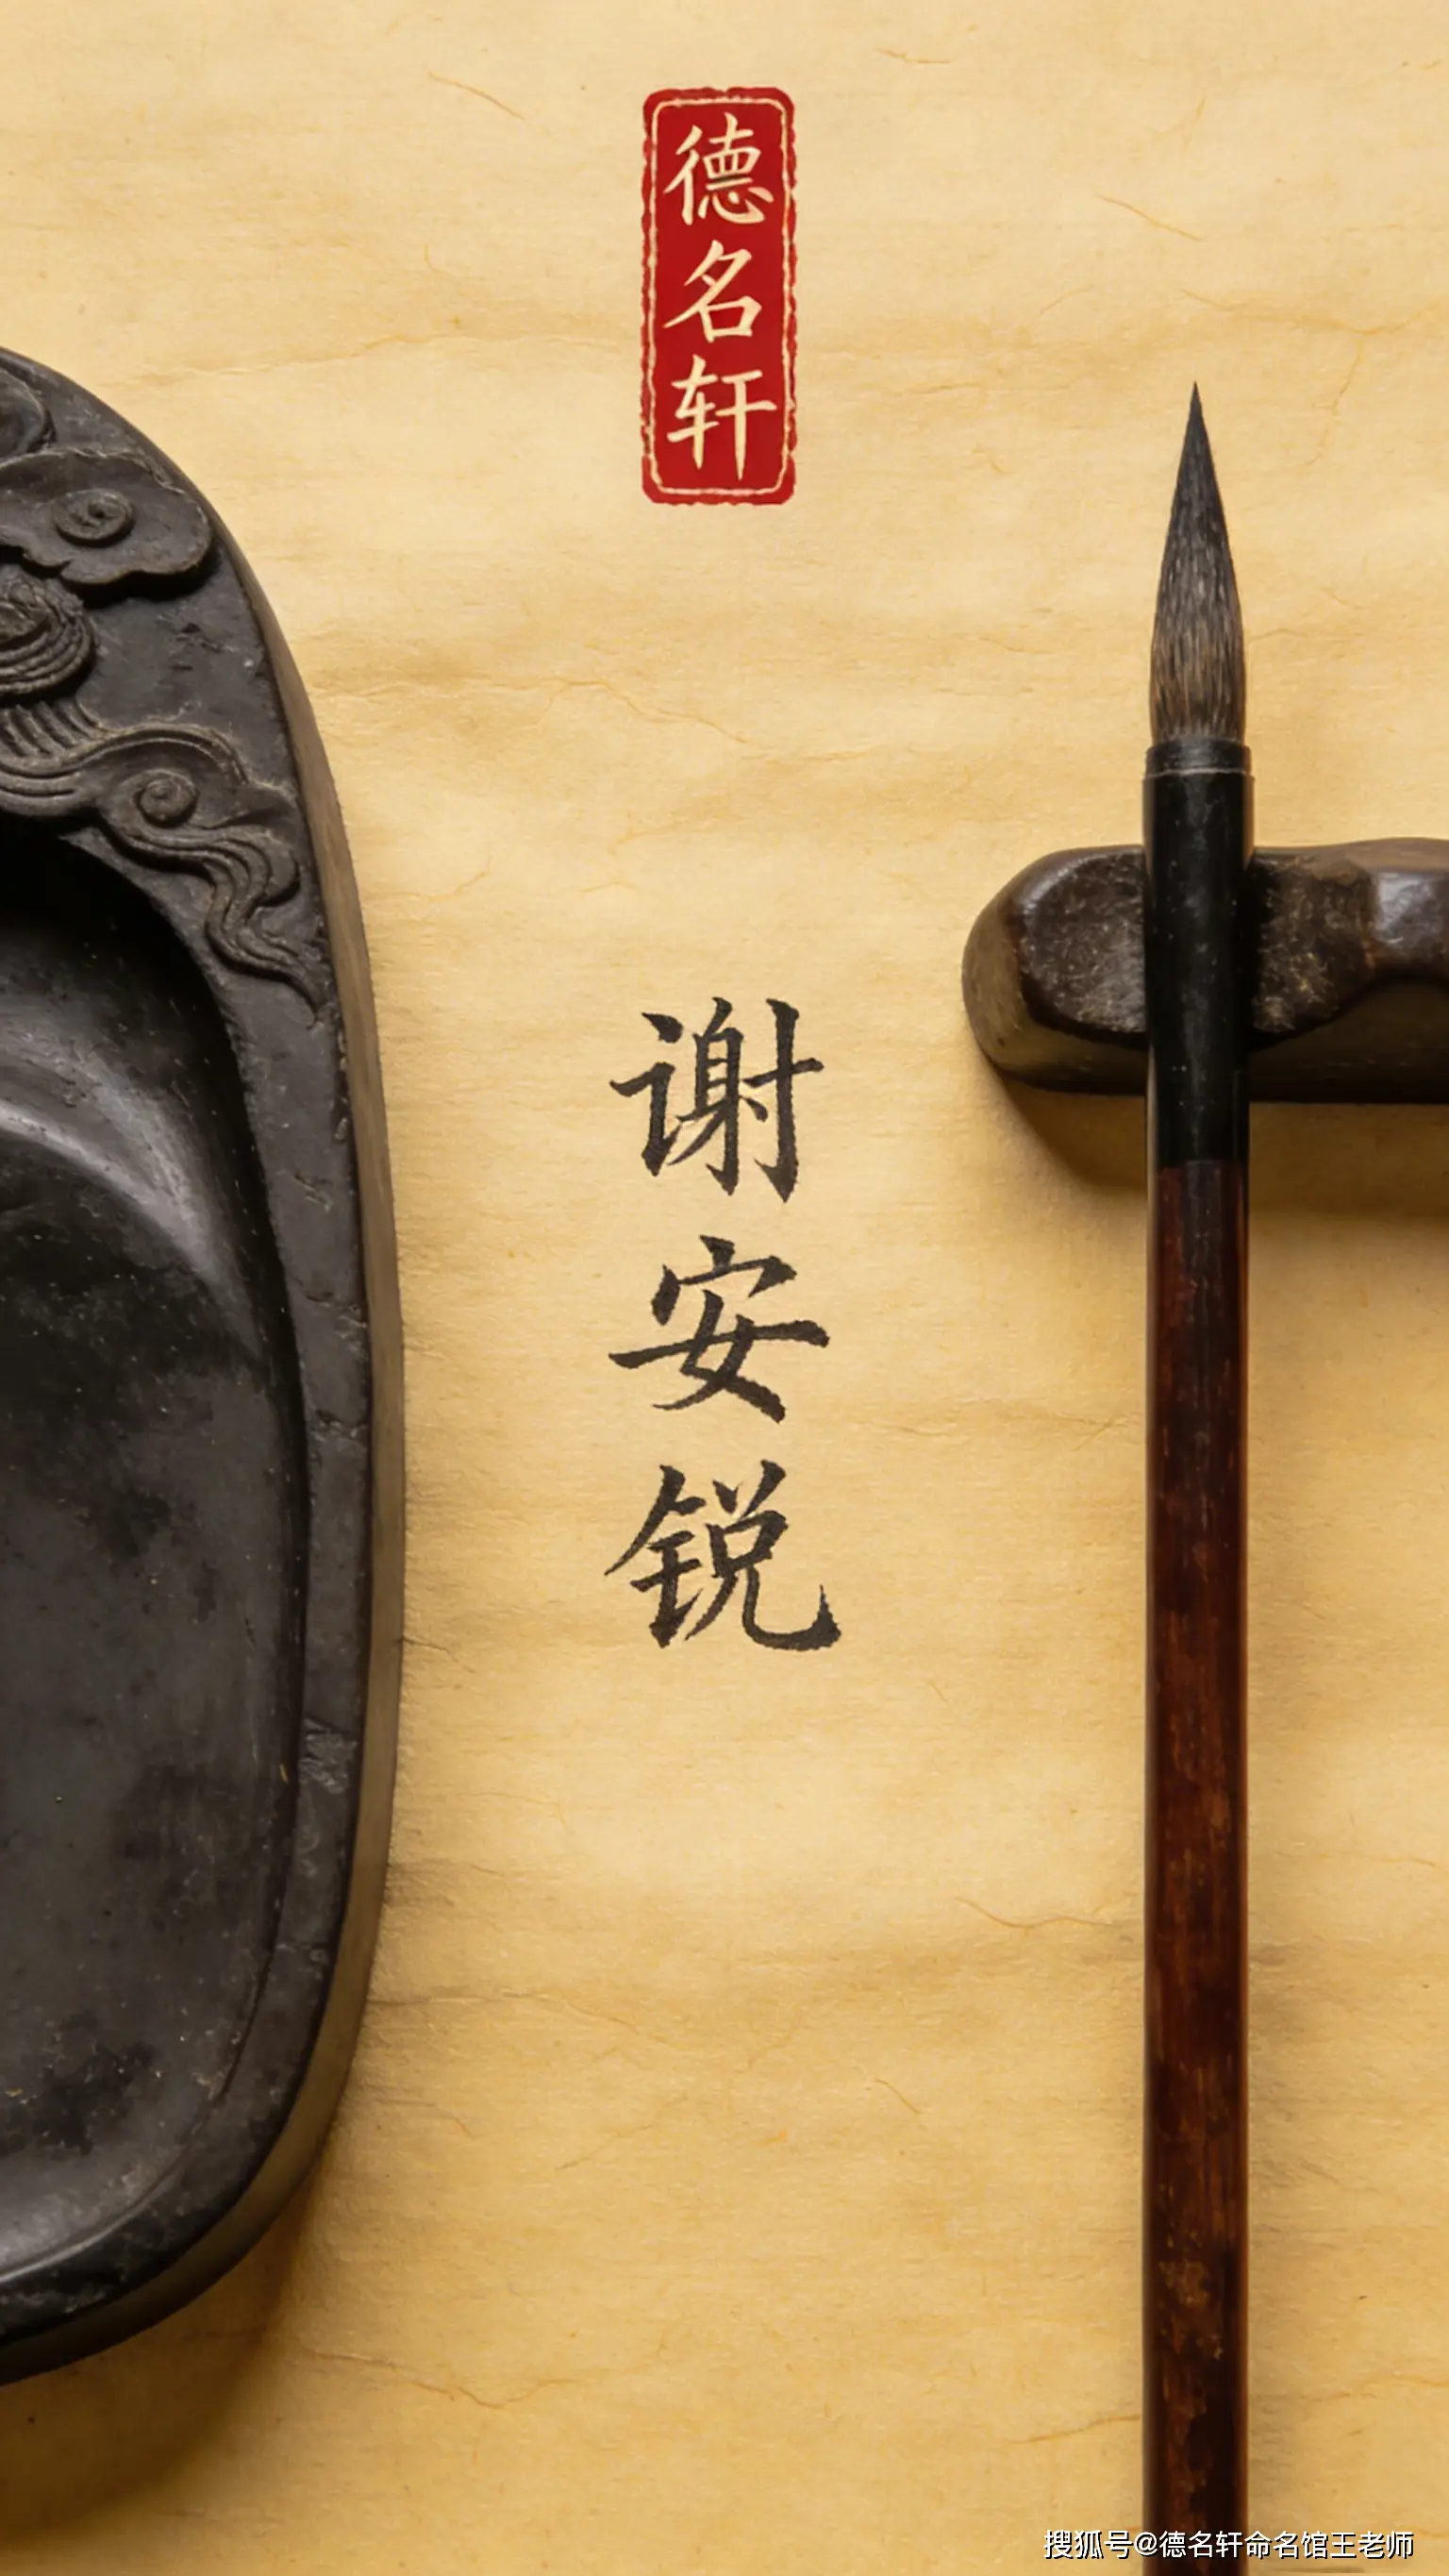 德名轩
谢安锐
搜狐号@德名轩命名馆王老师